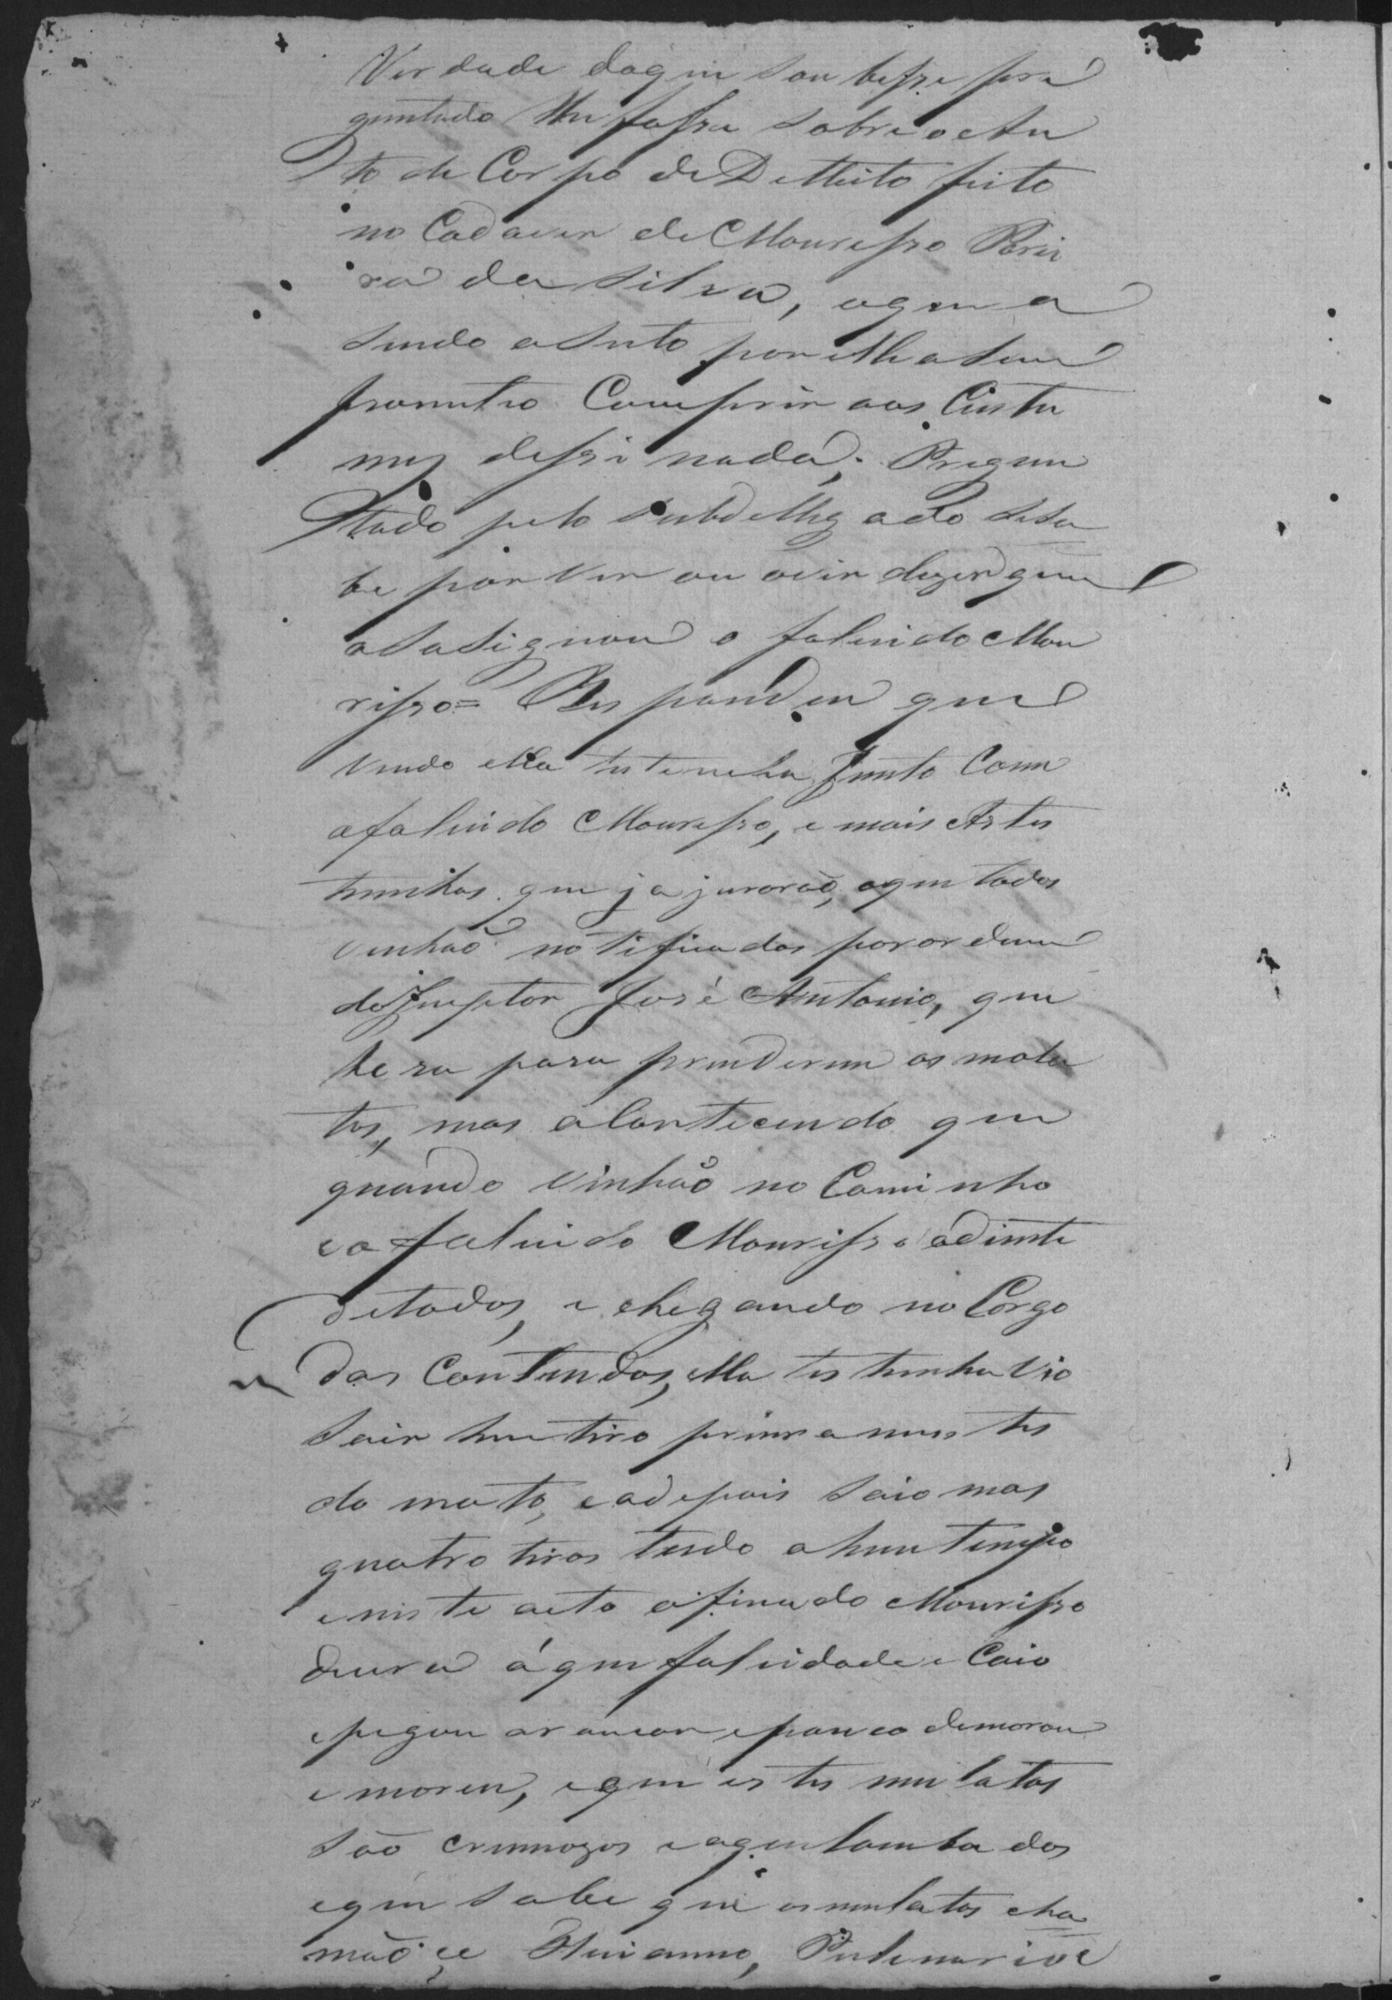 Verdade doque soubesse pre
guntado lhe fosse sobre o Au
to de Corpo de Delleito feito
no Cadaver de Mouresso Perei
ra da Silva, o que a
sendo aSeito por ella asim
prometeo Comprir aos Custu
mes desse nada. Pregun
tado pelo Subdellegado se sa
be por ver ou ovir dizer quem
asasignou o falecido Mou
risso = Respondeu que
vindo ella testemunha Junto Com
o falecido Mouresso, e mais As tes
temunhas que ja jurarão, o que todos
vinhão notificados por ordem
do Inspetor José Antonio, que
hera para prenderem os mola
tos, mas alContecendo que
quando vinhão no Caminho
e o falecido Mourisso adiente
detodos, e chegando no Corgo
das Contendas, ella testemunha vio
Sair hum tiro primeramentes
do mato, e adepois Saio mas
quatro tiros tudo a hum tempo
e neste acto o finado Mourisso
dicera á que falcidade e Caio
e pegou arancar e pouco demorou
e moreu, e que estes mulatos
São criminozos
e que Sabe que os mulatos cha
mão çe